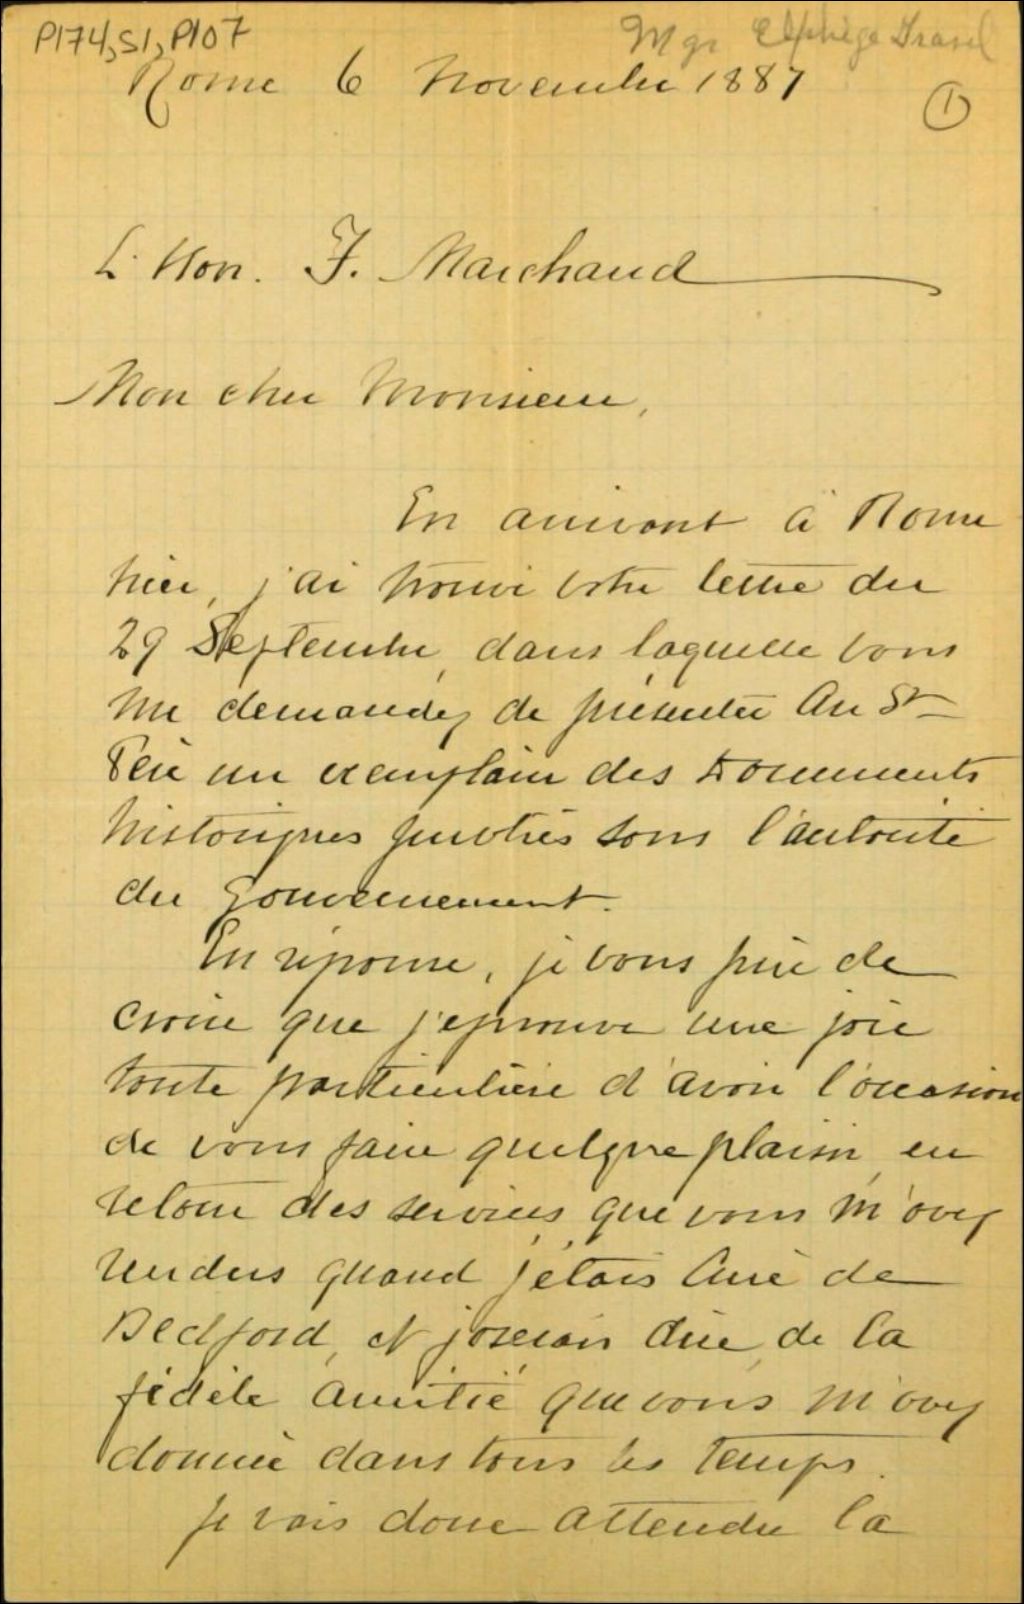 P174,S1,P107
Mgr Elphège Gravel
Rome 6 Novembre 1887
1
L'Hon. F. Marchand
Mon cher Monsieur,
En arrivant à Rome
hier, j'ai trouvé votre lettre du
29 Septembre, dans laquelle vous
me demandez de présenter au St
Père un exemplaire des Documents
historiques publiés sous l'autorité
du Gouvernement.
En réponse, je vous prie de
croire que j'éprouve une joie
toute particulière d'avoir l'occasion
de vous faire quelque plaisir, en
retour des services que vous m'avez
rendus quand j'étais Curé de
Bedford, et j'oserais dire, de la
fidèle amitié que vous m'avez
donnée dans tous les temps.
Je vais donc attendre la